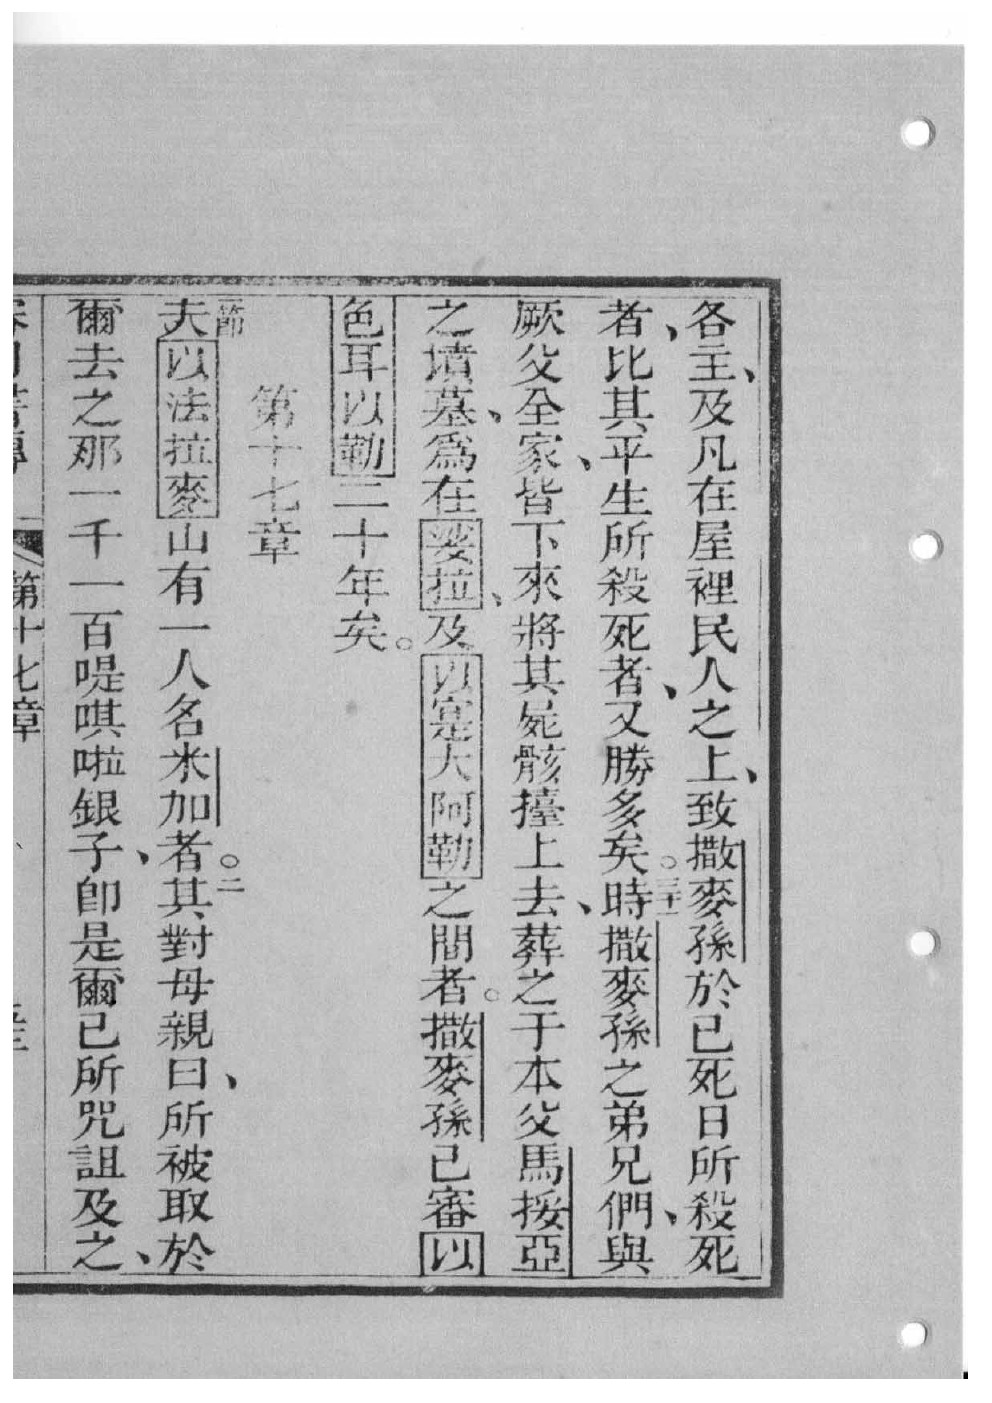 各主、及凡在屋裡民人之上、致撒麥孫於已死日所殺死
者、比其平生所殺死者、又勝多矣。三十一時撒麥孫之弟兄們、與
厥父全家、皆下來將其屍骸擡上去、葬之于本父馬挼亞
之墳墓、爲在娑拉、及以寔大阿勒之間者。撒麥孫已審以
色耳以勒二十年矣。
第十七章
一節夫以法拉麥山有一人名米加者。二其對母親曰、所被取於
爾去之那一千一百㖷唭啦銀子、卽是爾已所咒詛及之、
第十七章